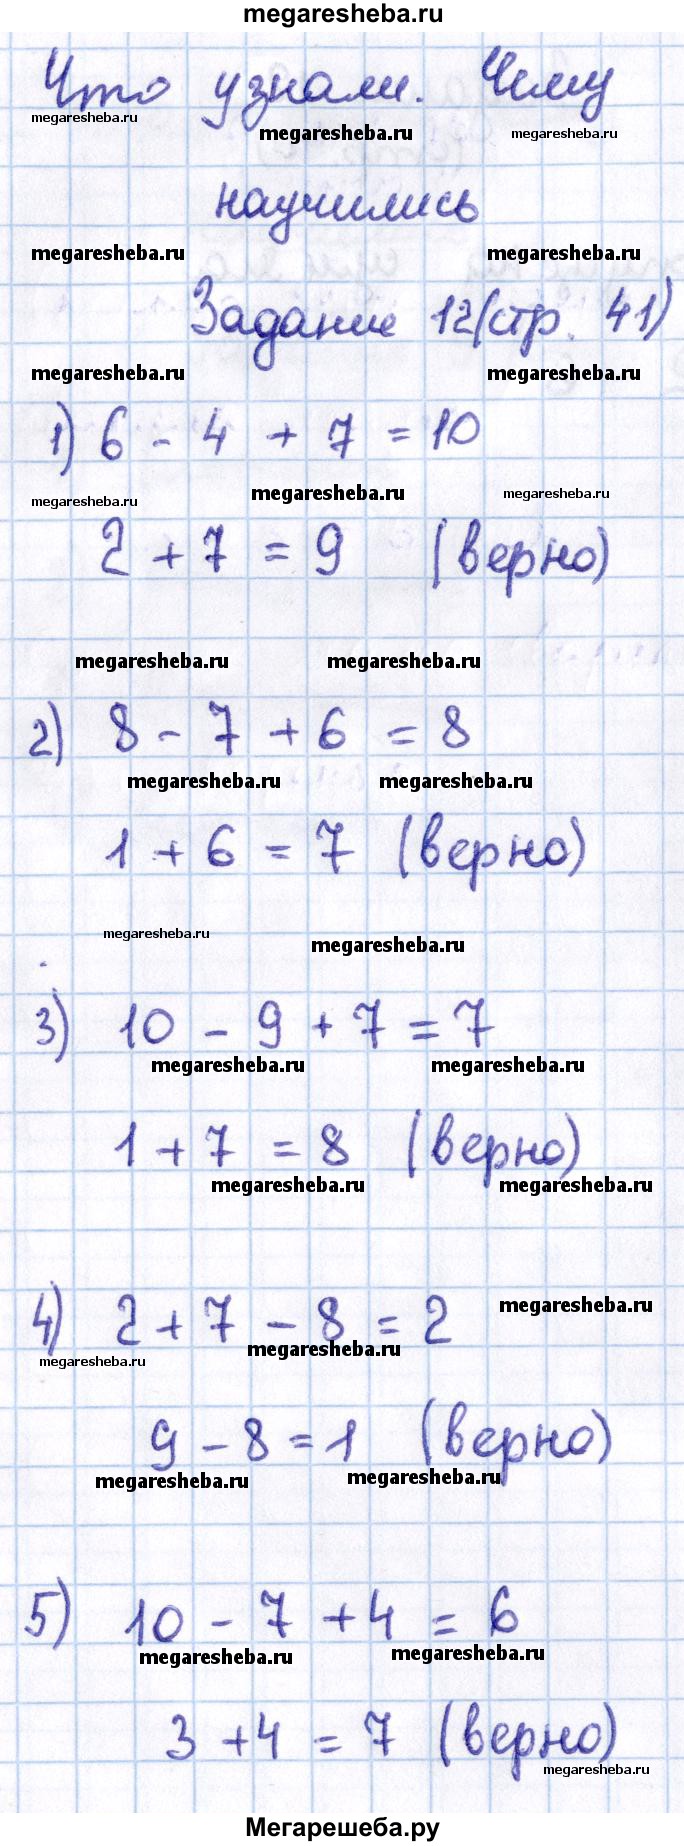 megaresheba.ru
Что узнали. Чему
megaresheba.ru
megaresheba.ru megaresheba.ru
научились
megaresheba.ru megaresheba.ru
Задание 12(стр. 41)
megaresheba.ru megaresheba.ru
1) 6 - 4 + 7 = 10
megaresheba.ru megaresheba.ru megaresheba.ru
2 + 7 = 9 (верно)
megaresheba.ru megaresheba.ru
2) 8 - 7 + 6 = 8
megaresheba.ru megaresheba.ru
1 + 6 = 7 (верно)
megaresheba.ru megaresheba.ru
3) 10 - 9 + 7 = 7
megaresheba.ru megaresheba.ru
1 + 7 = 8 (верно)
megaresheba.ru megaresheba.ru
4) 2 + 7 - 8 = 2 megaresheba.ru
megaresheba.ru megaresheba.ru
9 - 8 = 1 (верно)
megaresheba.ru megaresheba.ru
5) 10 - 7 + 4 = 6
megaresheba.ru megaresheba.ru
3 + 4 = 7 (верно)
megaresheba.ru
Мегарешеба.ру